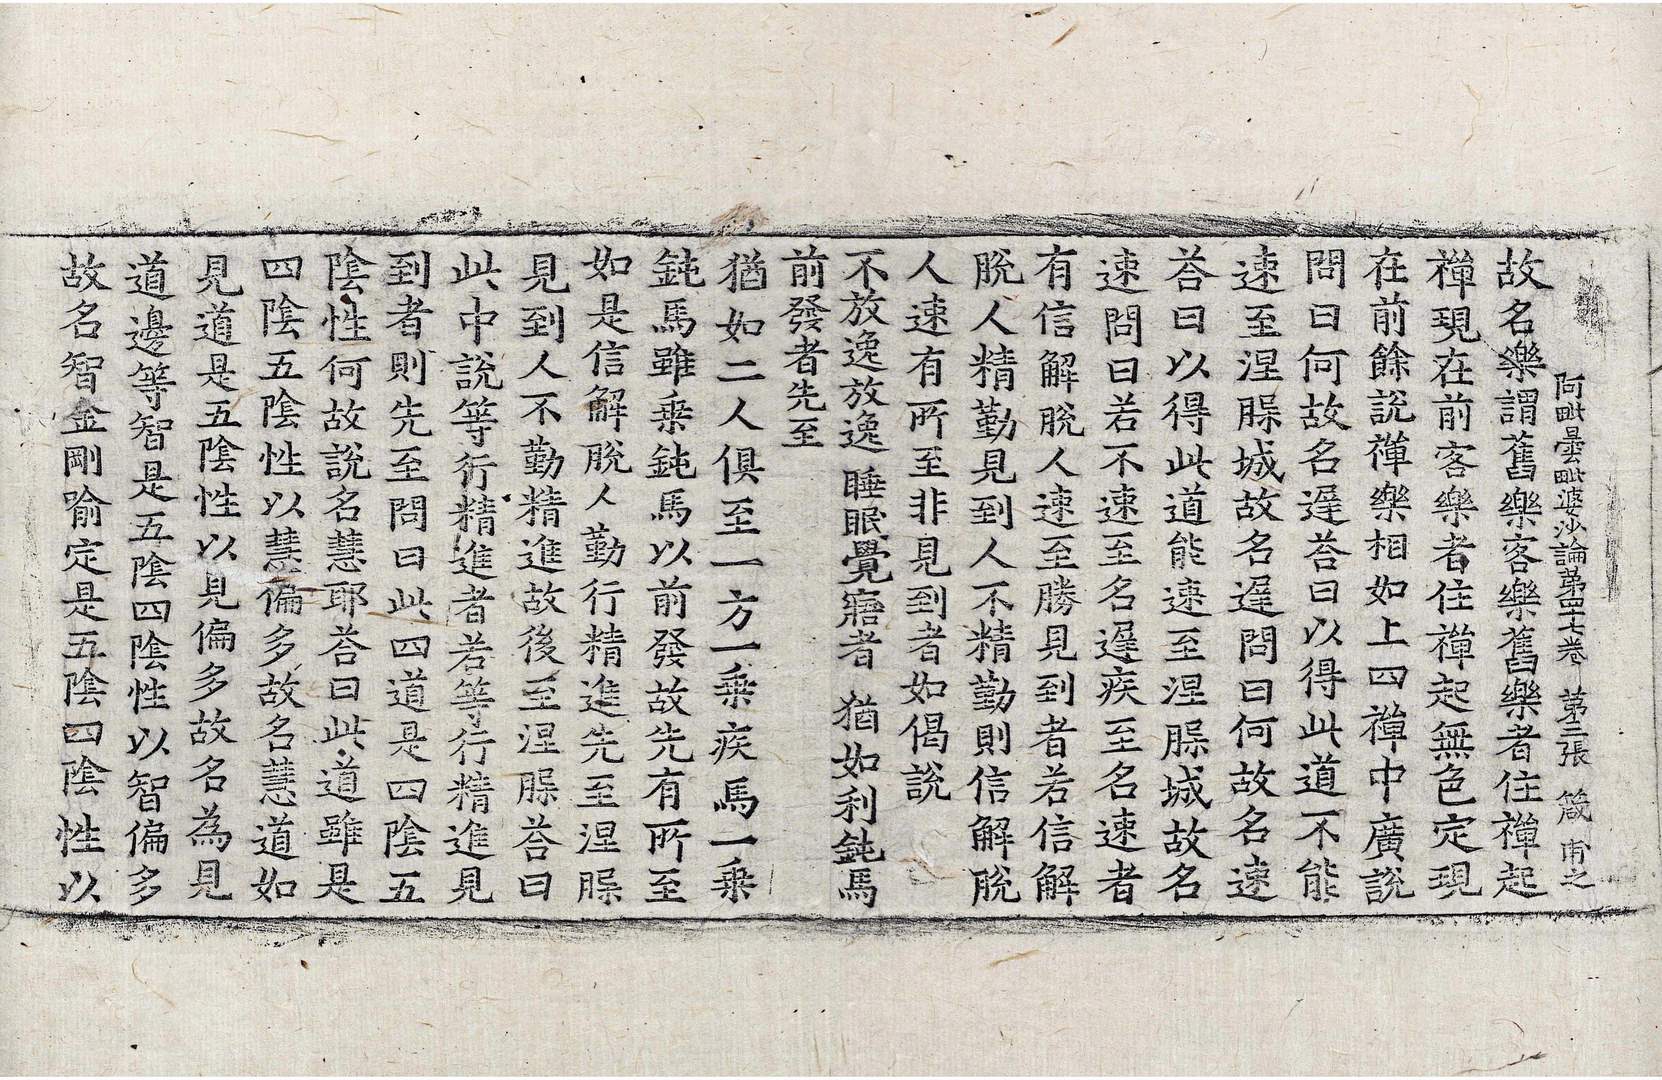 阿毗曇毗婆沙論第四十七卷 第二張 箴 甫之
故名樂謂舊樂客樂舊樂者住禪起
禪現在前客樂者住禪起無色定現
在前餘說禪樂相如上四禪中廣說
問曰何故名遲荅曰以得此道不能
速至涅槃城故名遲問曰何故名速
荅曰以得此道能速至涅槃城故名
速問曰若不速至名遲疾至名速者
有信解脫人速至勝見到者若信解
脫人精勤見到人不精勤則信解脫
人速有所至非見到者如偈說
不放逸放逸 睡眠覺寤者 猶如利鈍馬
前發者先至
猶如二人俱至一方一乗疾馬一乗
鈍馬雖乗鈍馬以前發故先有所至
如是信解脫人勤行精進先至涅槃
見到人不勤精進故後至涅槃荅曰
此中說等行精進者若等行精進見
到者則先至問曰此四道是四陰五
陰性何故說名慧耶荅曰此道雖是
四陰五陰性以慧偏多故名慧道如
見道是五陰性以見偏多故名為見
道邊等智是五陰四陰性以智偏多
故名智金剛喻定是五陰四陰性以